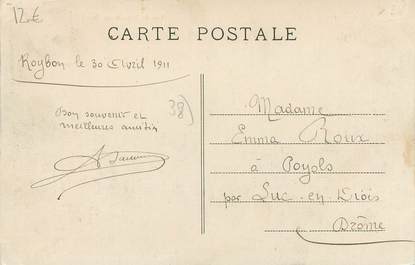 12€
CARTE POSTALE
Roybon le 30 Avril 1911
38)
Bon souvenir et
meilleures amitiés
Madame
Emma Roux
à Poyols
par Luc-en-Diois
Drôme